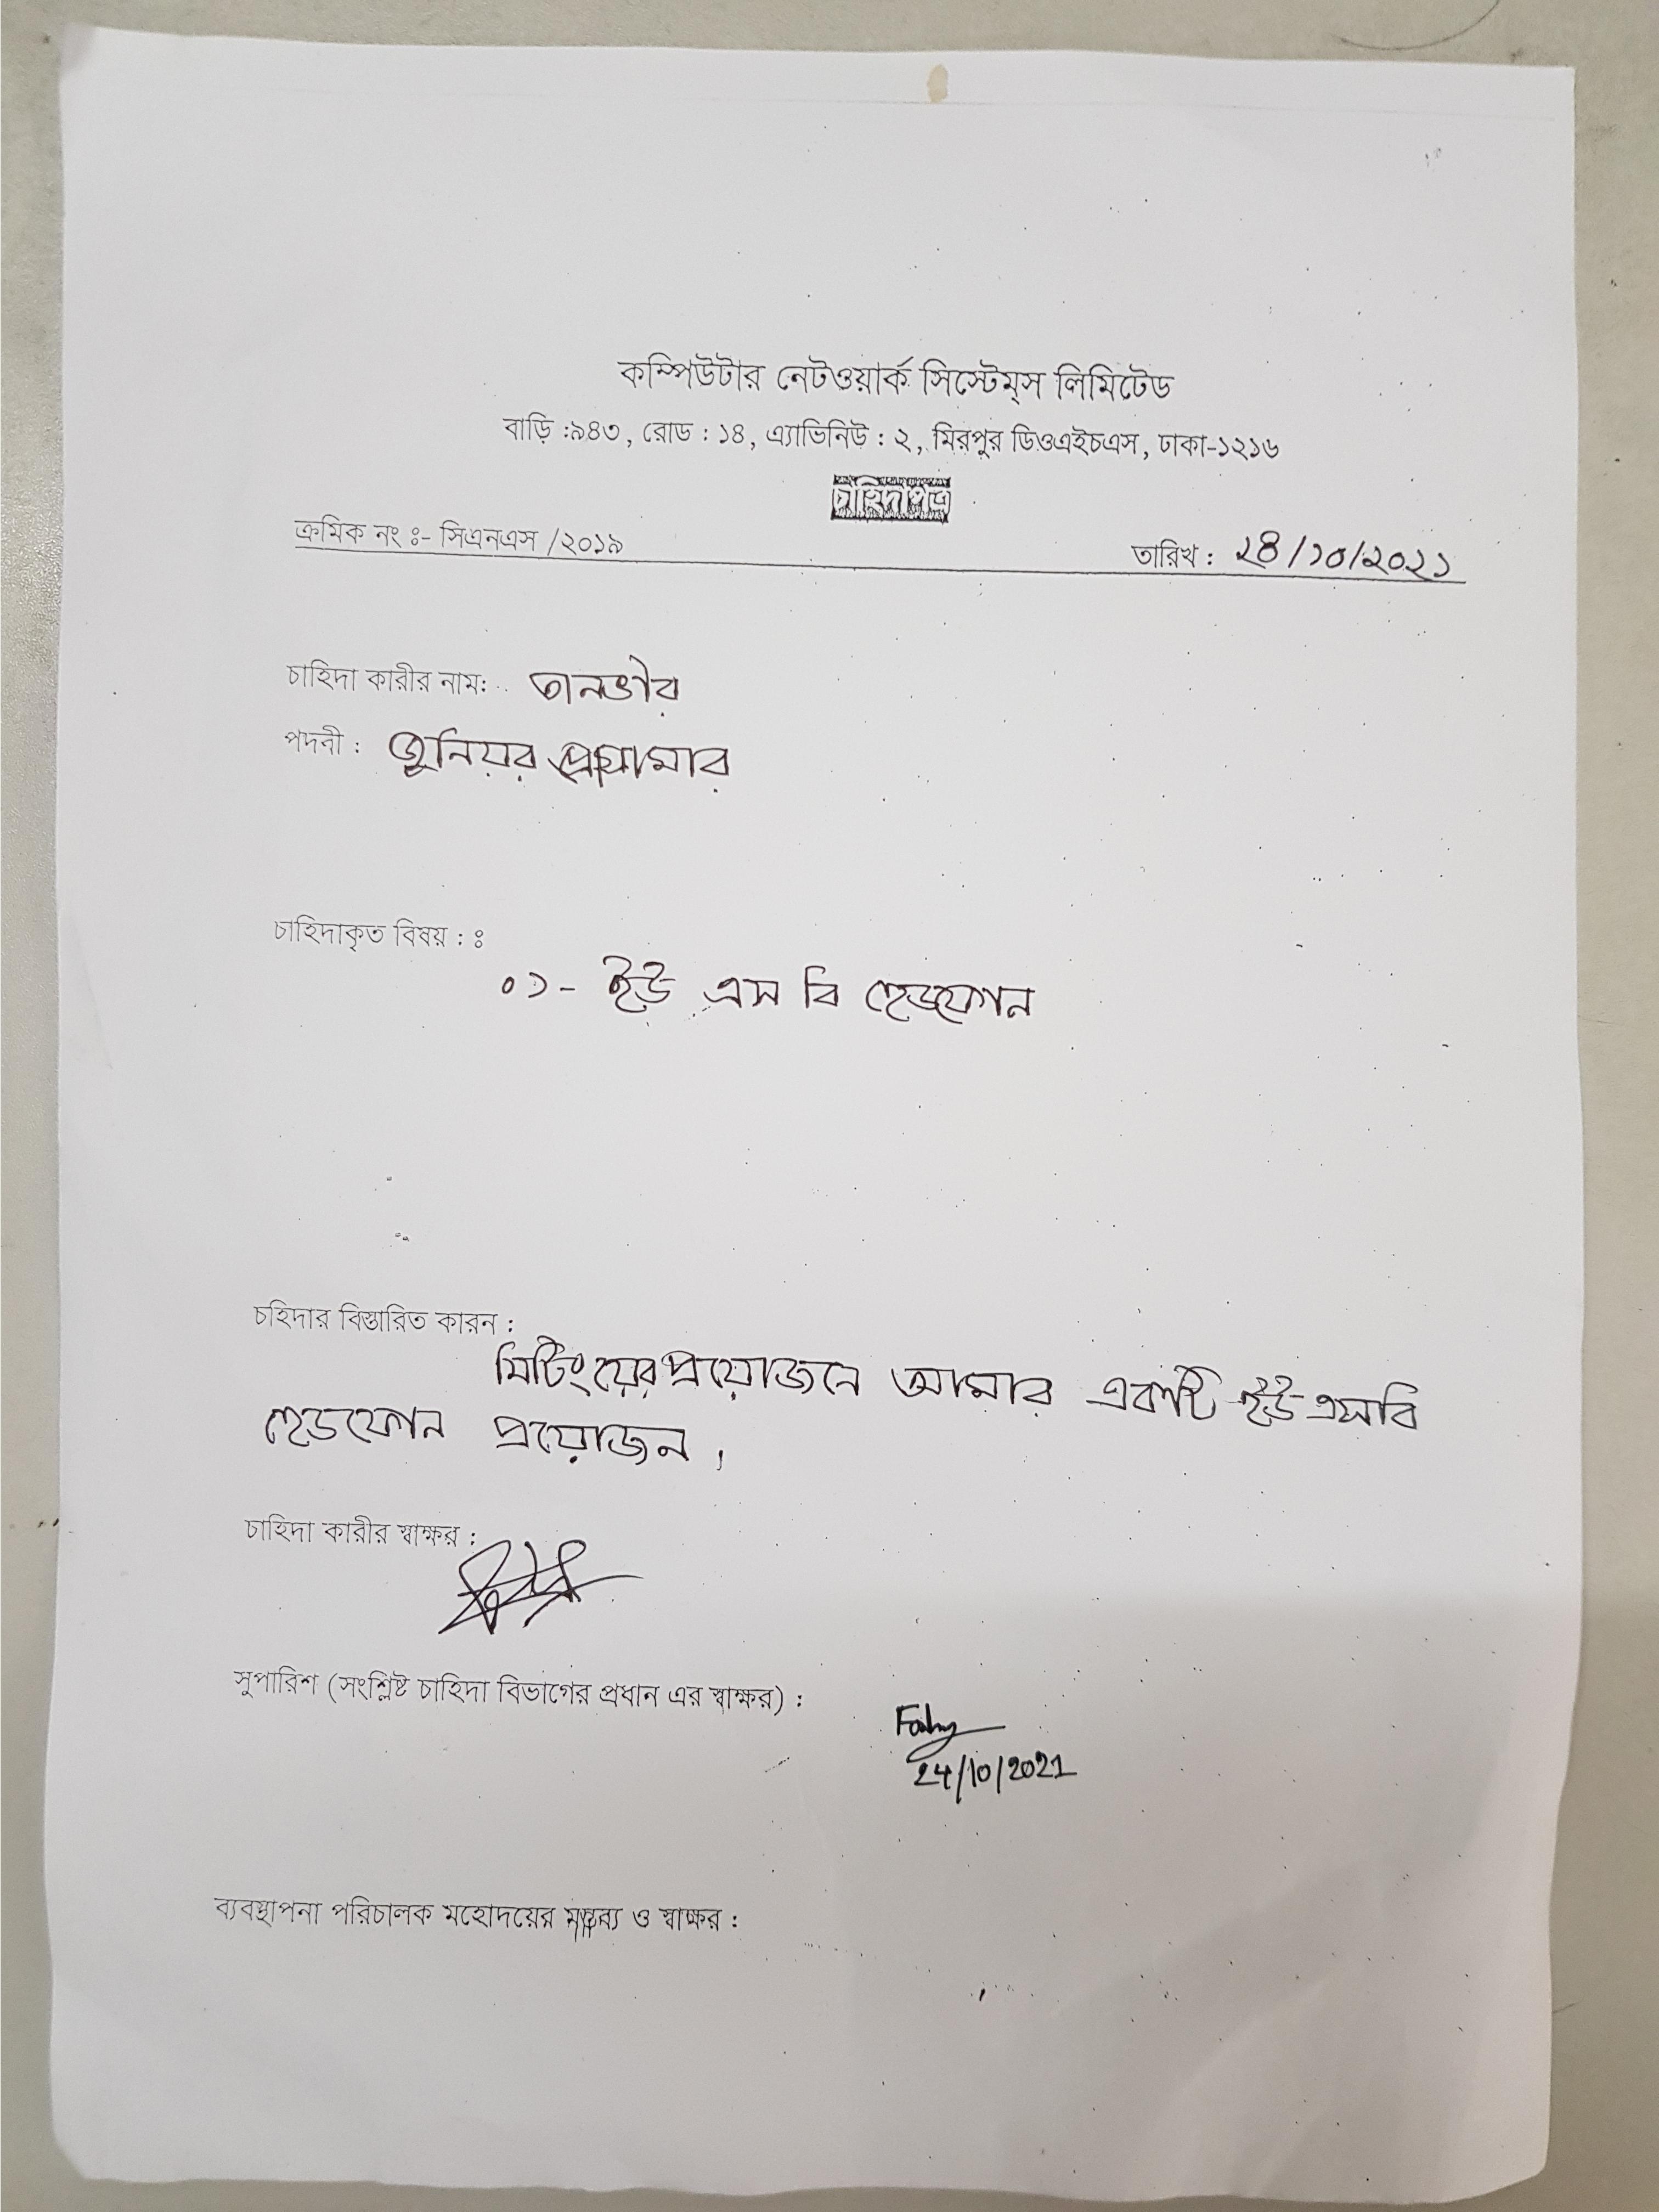 কম্পিউটার নেটওয়ার্ক সিস্টেম্‌স লিমিটেড
বাড়ি :৯৪৩, রোড : ১৪, এ্যাভিনিউ : ২, মিরপুর ডিওএইচএস, ঢাকা-১২১৬
চাহিদাপত্র
ক্রমিক নং ঃ- সিএনএস /২০১৯
তারিখ : ২৪/১০/২০২১
চাহিদা কারীর নাম: তানভীর
পদবী : জুনিয়র প্রোগ্রামার
চাহিদাকৃত বিষয় : ঃ
০১- ইউ এস বি হেডফোন
চহিদার বিস্তারিত কারন :
মিটিংয়ের প্রয়োজনে আমার একটি ইউএসবি
হেডফোন প্রয়োজন।
চাহিদা কারীর স্বাক্ষর :
সুপারিশ (সংশ্লিষ্ট চাহিদা বিভাগের প্রধান এর স্বাক্ষর) :
24/10/2021
ব্যবস্থাপনা পরিচালক মহোদয়ের মন্তব্য ও স্বাক্ষর :